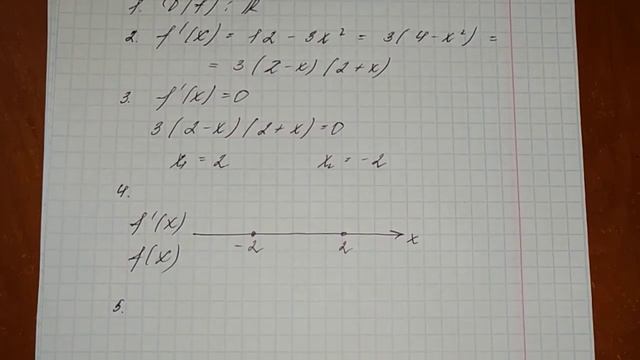 1. D(f): ℝ
2. f'(x) = 12 - 3x² = 3(4-x²) =
= 3(2-x)(2+x)
3. f'(x)=0
3(2-x)(2+x)=0
x₁ = 2 x₂ = -2
4.
f'(x)
f(x) -2 2 x
5.